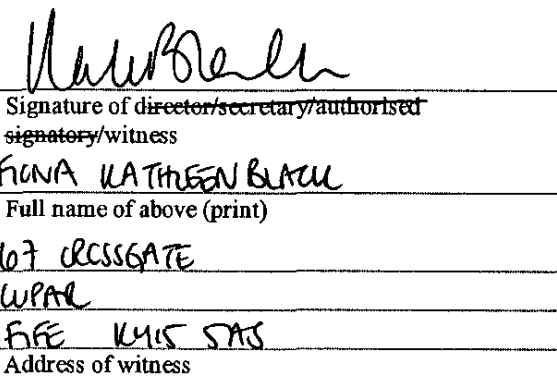 Signature of director/secretary/authorised
signatory/witness
FIONA KATHLEEN BLACK
Full name of above (print)
67 CROSSGATE
CUPAR
FIFE KY15 5AS
Address of witness